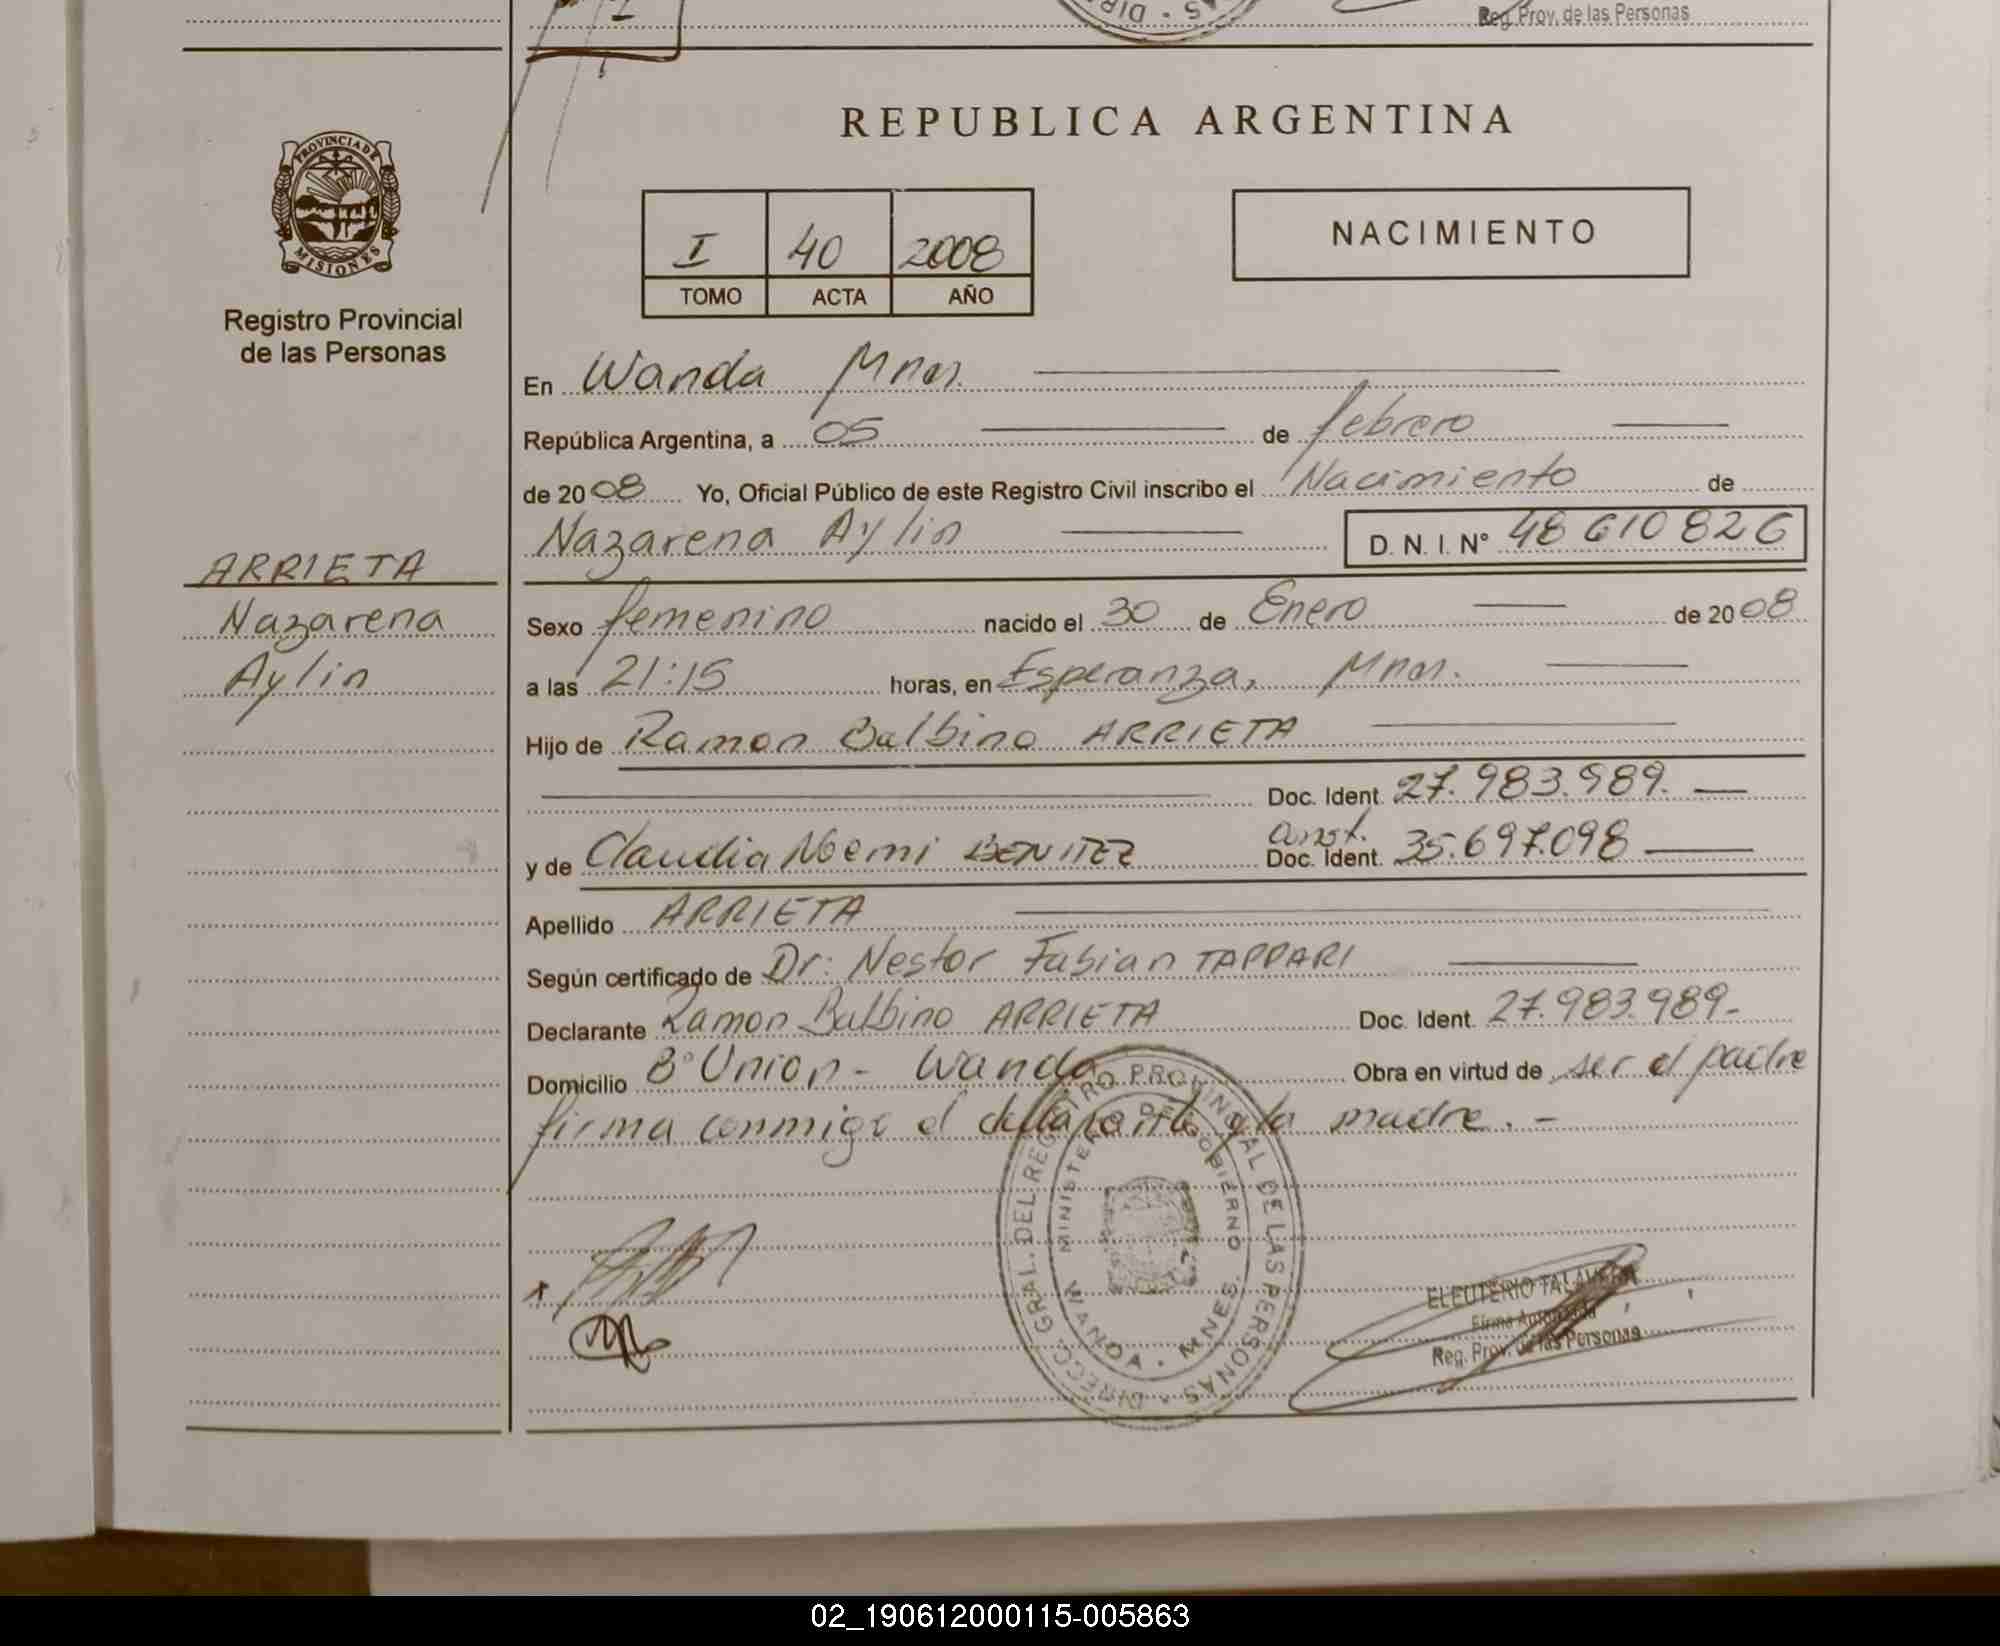 Reg. Prov. de las Personas
REPUBLICA ARGENTINA
PROVINCIA DE
MISIONES
Registro Provincial
de las Personas
I 40 2008
TOMO ACTA AÑO
NACIMIENTO
En Wanda Mnes.
República Argentina, a 05 de febrero
de 2008 Yo, Oficial Público de este Registro Civil inscribo el Nacimiento de
Nazarena Aylin D. N. I. N° 48 610 826
ARRIETA
Nazarena
Aylin
Sexo femenino nacido el 30 de Enero de 2008
a las 21:15 horas, en Esperanza, Mnes.
Hijo de Ramon Balbino ARRIETA
Doc. Ident. 27.983.989.
y de Claudia Noemi BENITEZ Doc. Ident. 35.697.098
Apellido ARRIETA
Según certificado de Dr: Nestor Fabian TAPPARI
Declarante Ramon Balbino ARRIETA Doc. Ident. 27.983.989-
Domicilio B° Union - Wanda Obra en virtud de ser el padre
firma conmigo el declarante y la madre. -
DIRECC. GRAL. DEL REGISTRO PROVINCIAL DE LAS PERSONAS
MINISTERIO DE GOBIERNO
WANDA - MNES.
ELEUTERIO TALAVERA
Firma Autorizada
Reg. Prov. de las Personas
02_190612000115-005863